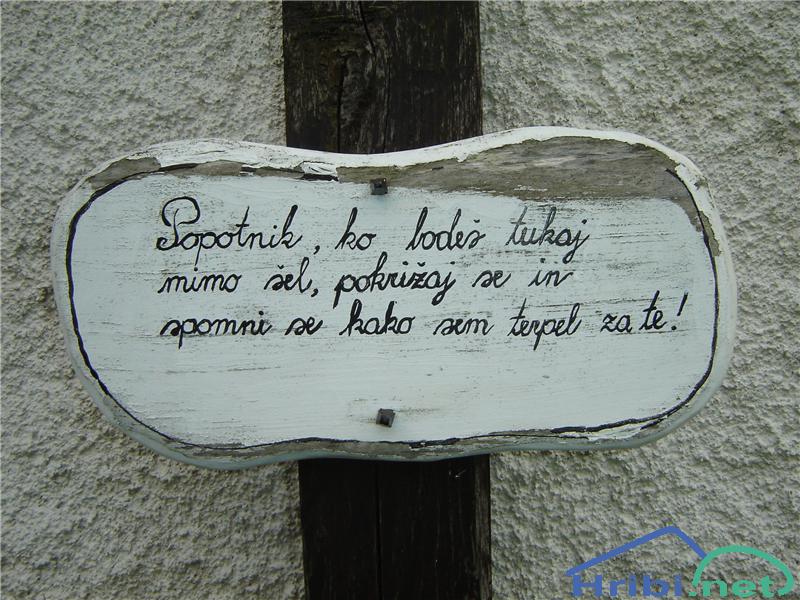 Popotnik, ko bodeš tukaj
mimo šel, pokrižaj se in
spomni se kako sem terpel za te!
Hribi.net